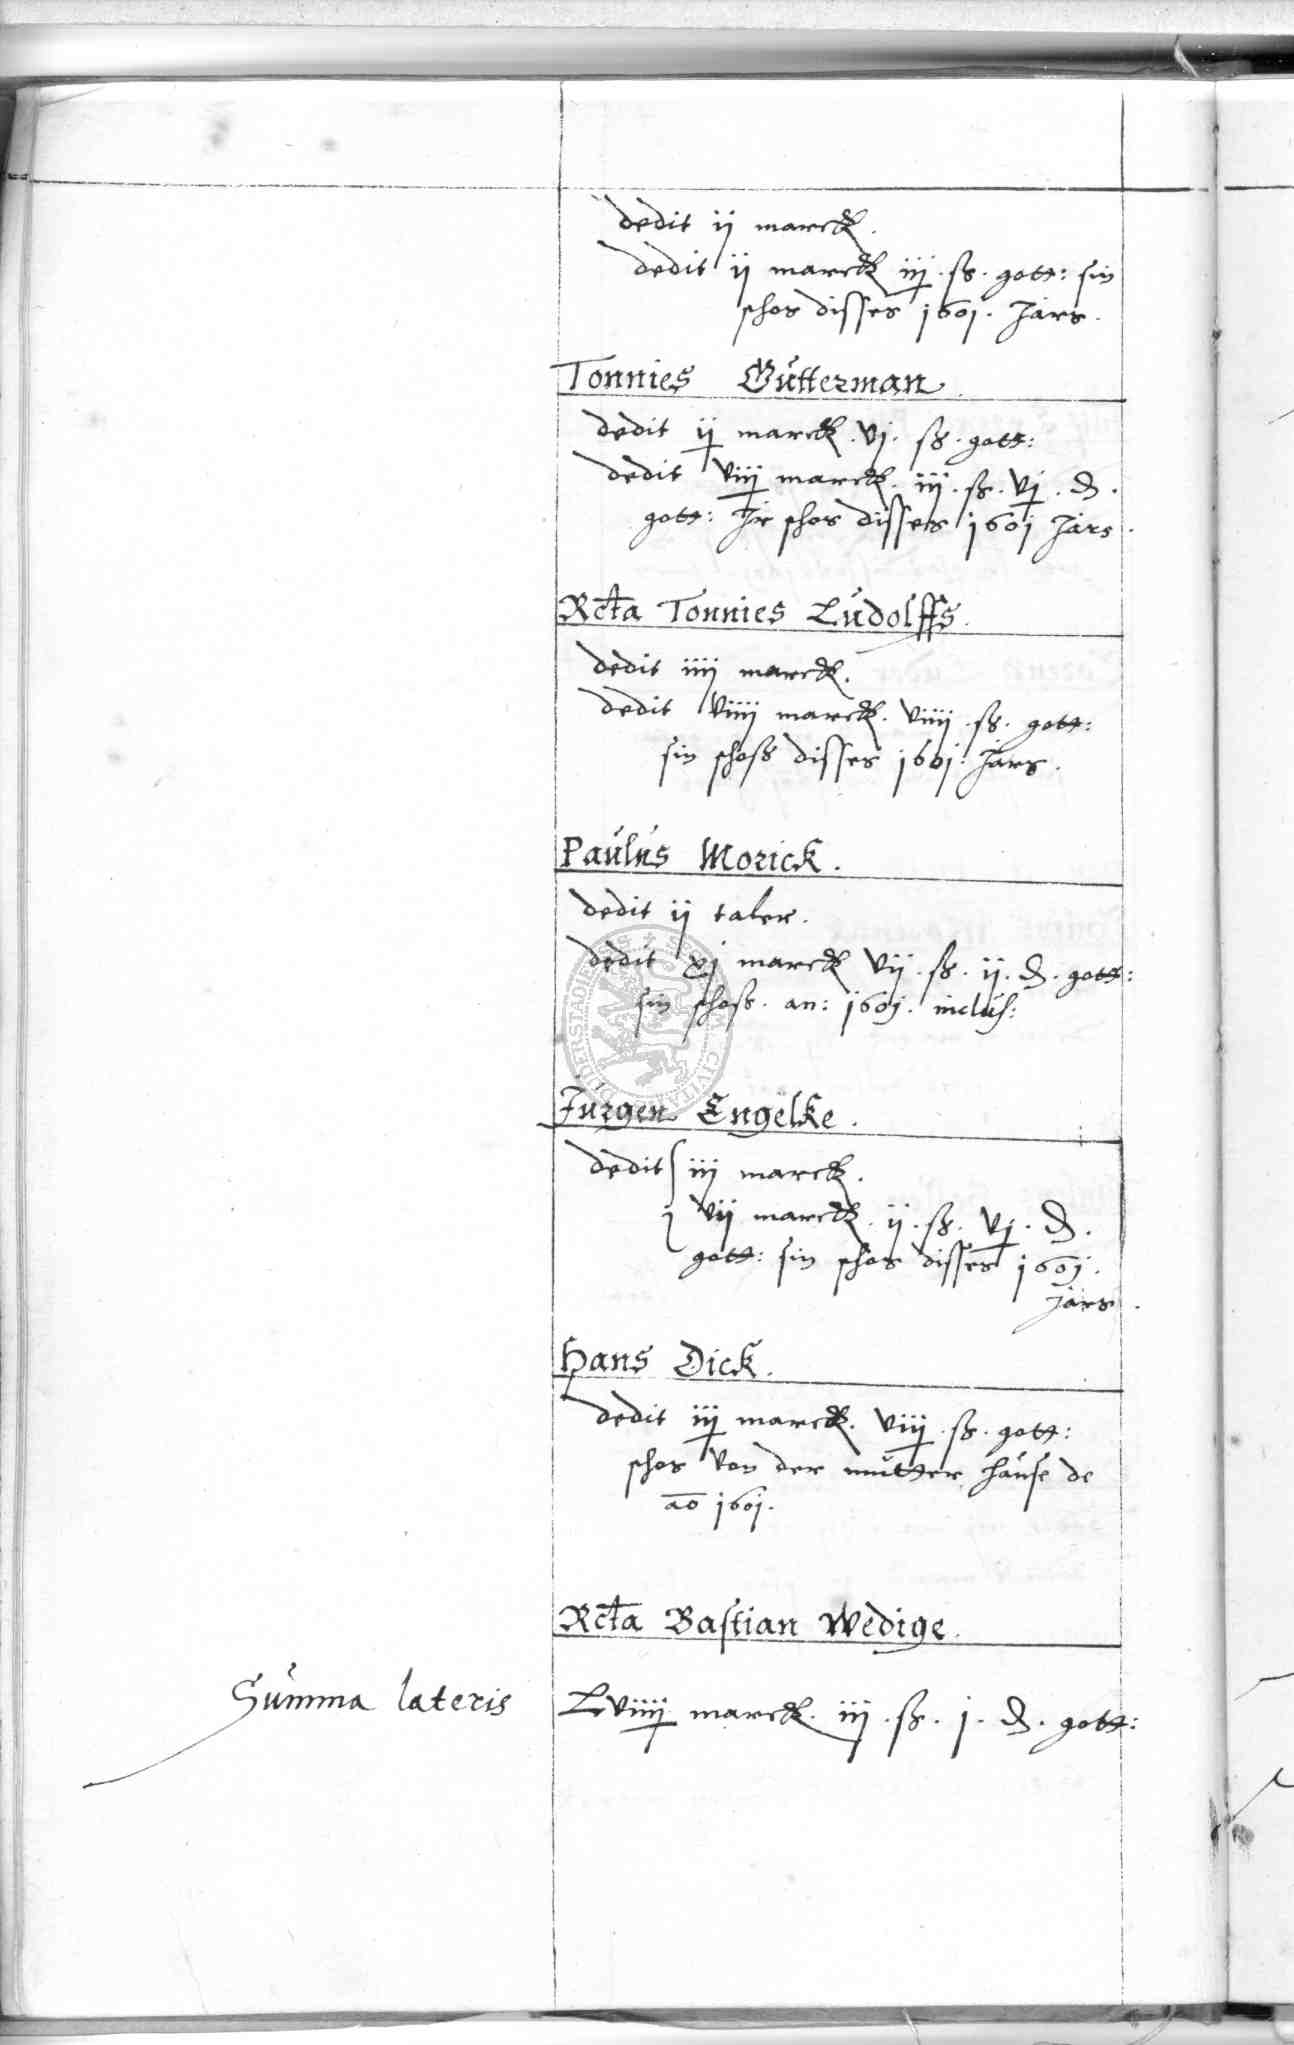 dedit ij marck.
dedit ij marck iij. ß. gott: sin
schos disses 1601. Jars.
Tonnies Gutterman.
dedit ij marck. vj. ß. gott:
dedit viij marck. iij. ß. vj. ₰.
gott: Jr schos disses 1601 Jars.
Rcta Tonnies Ludolffs.
dedit iiij marck.
dedit viiij marck. viiij. ß. gott:
sin schoß disses 1601. Jars.
Paulus Morick.
dedit ij taler.
dedit xj marck vij. ß. ij. ₰. gott:
sin schoß. an: 1601. inclus:
Jurgen Engelke.
dedit iij marck.
vij marck. ij. ß. vj. ₰.
gott: sin schos disses 1601.
Jars.
Hans Dick.
dedit iij marck. viij. ß. gott:
schos von der mutter hause de
ao 1601.
Rcta Bastian Wedige.
Summa lateris Lviiij marck. iij. ß. j. ₰. gott: